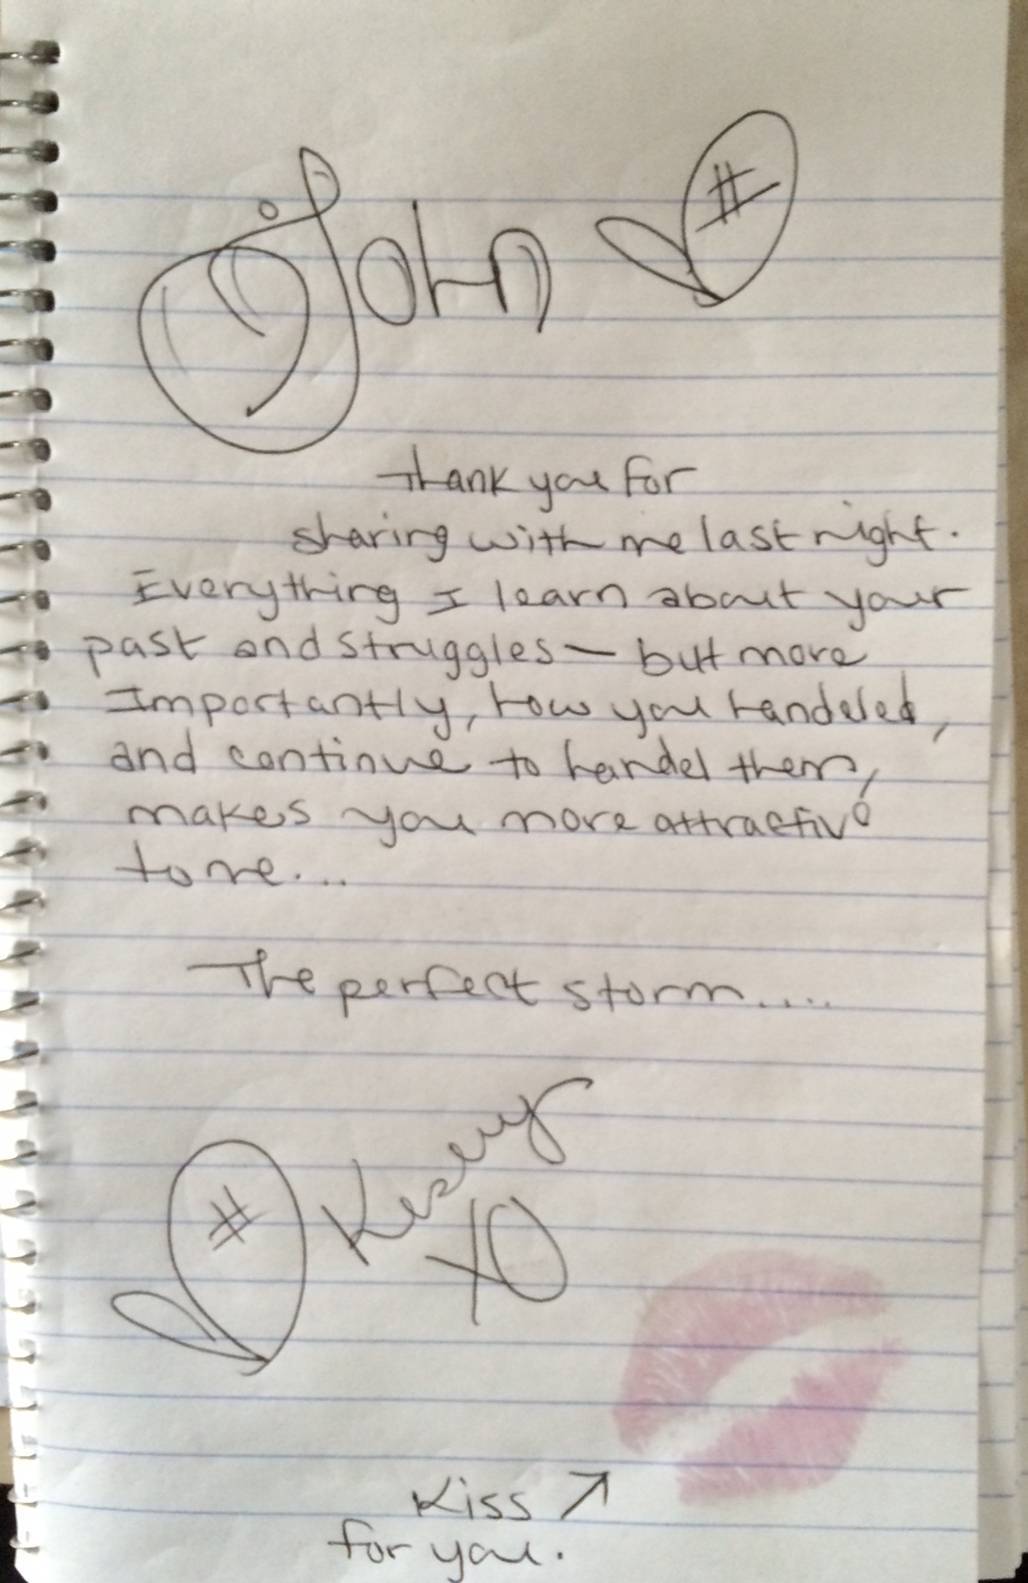 John #
Thank you for
sharing with me last night.
Everything I learn about your
past and struggles — but more
Importantly, how you handeled,
and continue to handel them,
makes you more attractive
to me....
The perfect storm.....
#
XO
Kiss ↗
for you.